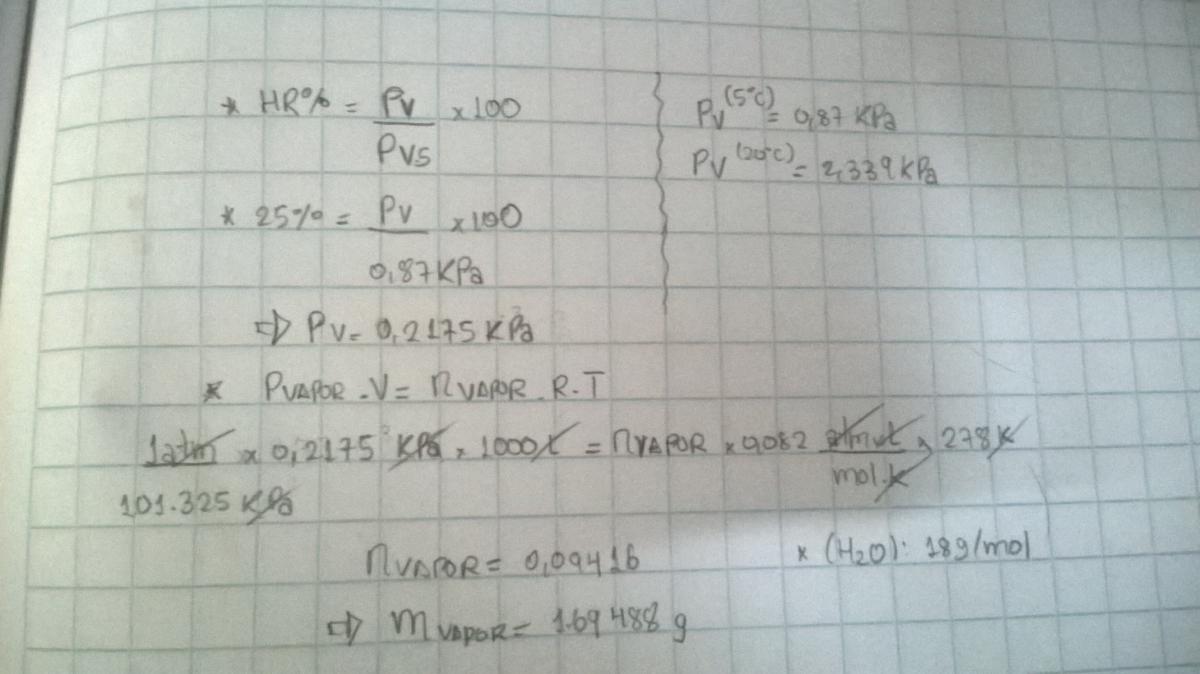 * HR% = Pv/Pvs x100
Pv (5°C) = 0,87 KPa
Pv (20°C) = 2,339 KPa
* 25% = Pv/0,87 KPa x100
⇒ Pv = 0,2175 KPa
* PVAPOR . V = nVAPOR . R . T
1atm/101.325 KPa x 0,2175 KPa x 1000 L = nVAPOR x 0,082 atm x L/mol.K x 278 K
nVAPOR = 0,09416
* (H2O): 18g/mol
⇒ mVAPOR = 1.69488 g